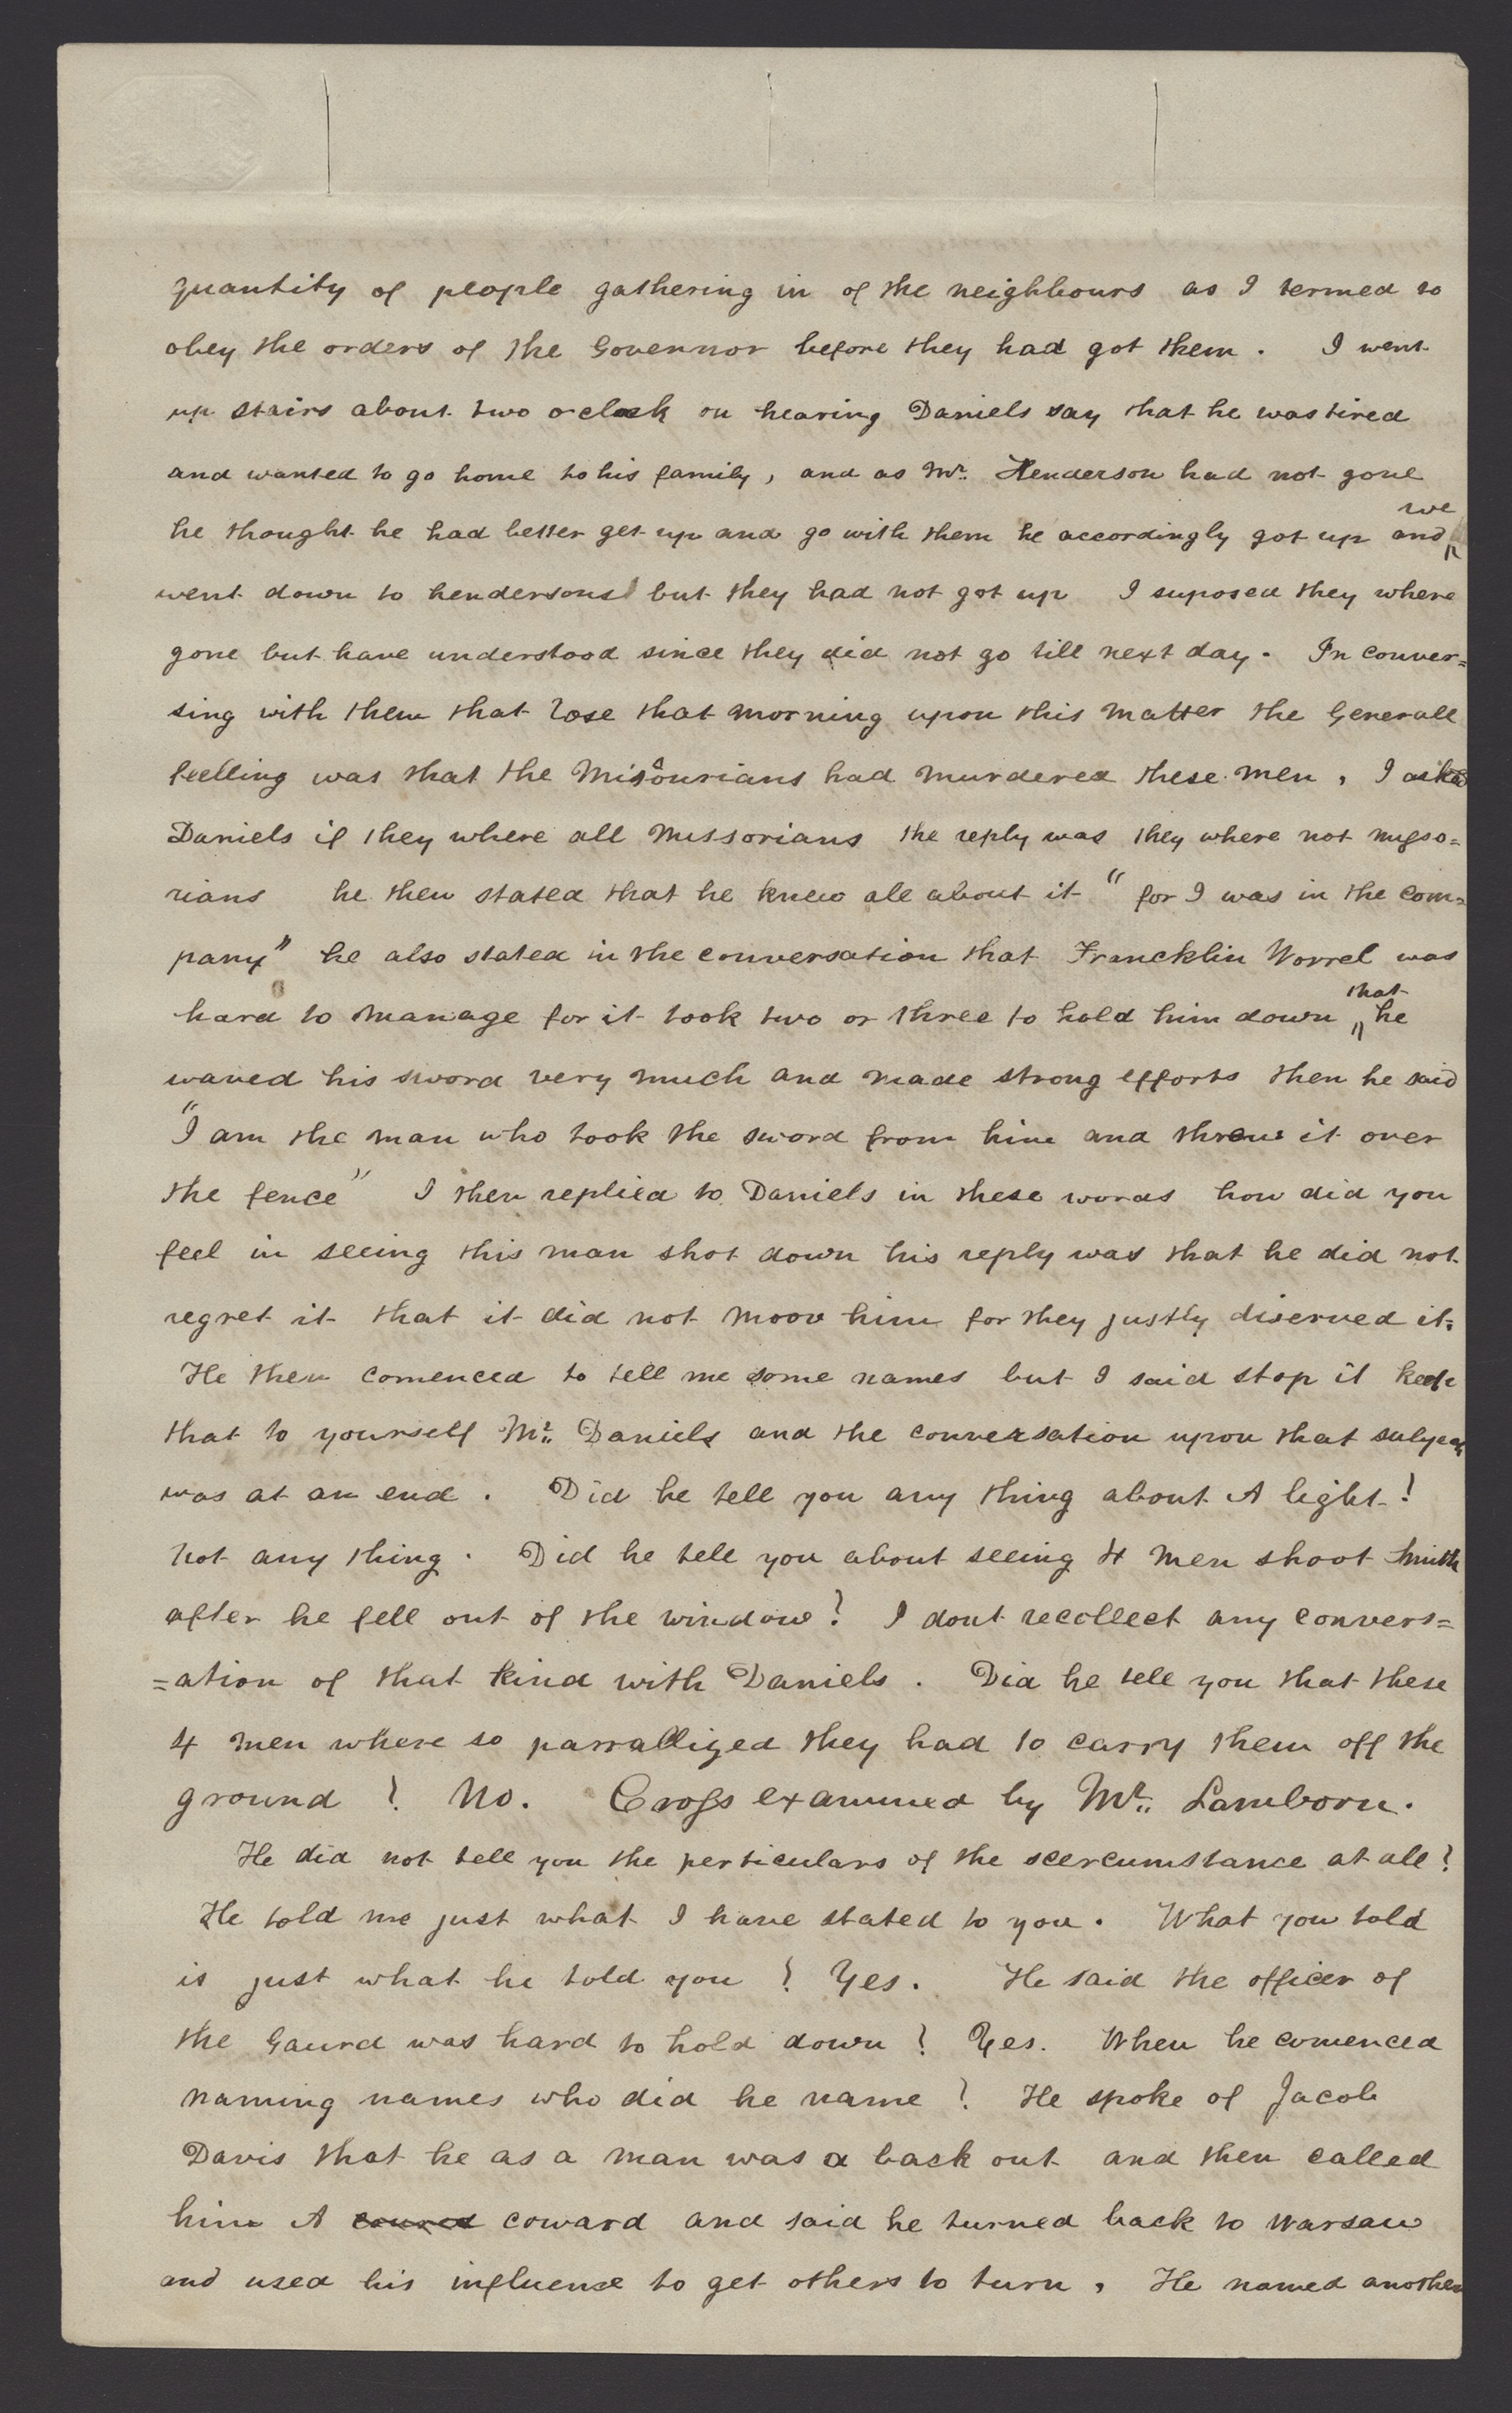 quantity of people gathering in of the neighbours as I termed to
obey the orders of the Governor before they had got them. I went
up stairs about two o clock on hearing Daniels say that he was tired
and wanted to go home to his family, and as Mr. Henderson had not gone
he thought he had better get up and go with them he accordingly got up and we
went down to hendersons but they had not got up I suposed they where
gone but have understood since they did not go till next day. In conver=
sing with them that rose that morning upon this matter the Generall
feelling was that the Missourians had murdered these men, I asked
Daniels if they where all Missorians the reply was they where not misso=
rians he then stated that he knew all about it "for I was in the com=
pany" he also stated in the conversation that Francklin Worrel was
hard to manage for it took two or three to hold him down that he
waved his sword very much and made strong efforts then he said
"I am the man who took the sword from him and threw it over
the fence" I then replied to Daniels in these words how did you
feel in seeing this man shot down his reply was that he did not
regret it that it did not moov him for they justly diserved it.
He then comenced to tell me some names but I said stop it keep
that to yourself Mr. Daniels and the conversation upon that subject
was at an end. Did he tell you any thing about A light!
not any thing. Did he tell you about seeing 4 men shoot Smith
after he fell out of the window? I dont recollect any convers=
=ation of that kind with Daniels. Did he tell you that these
4 men where so parralliged they had to carry them off the
ground? No. Cross examined by Mr. Lamborn.
He did not tell you the perticulars of the scercumstance at all?
He told me just what I have stated to you. What you told
is just what he told you? Yes. He said the officer of
the Gaurd was hard to hold down? Yes. When he comenced
naming names who did he name? He spoke of Jacob
Davis that he as a man was a back out and then called
him A coward and said he turned back to Warsaw
and used his influence to get others to turn, He named another